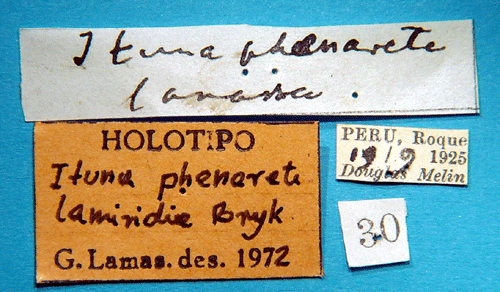 Ituna phenarete
lamirra.
HOLOTIPO
Ituna phenarete
lamiridia Bryk
G. Lamas. des. 1972
PERU, Roque
19/9 1925
Douglas Melin
30